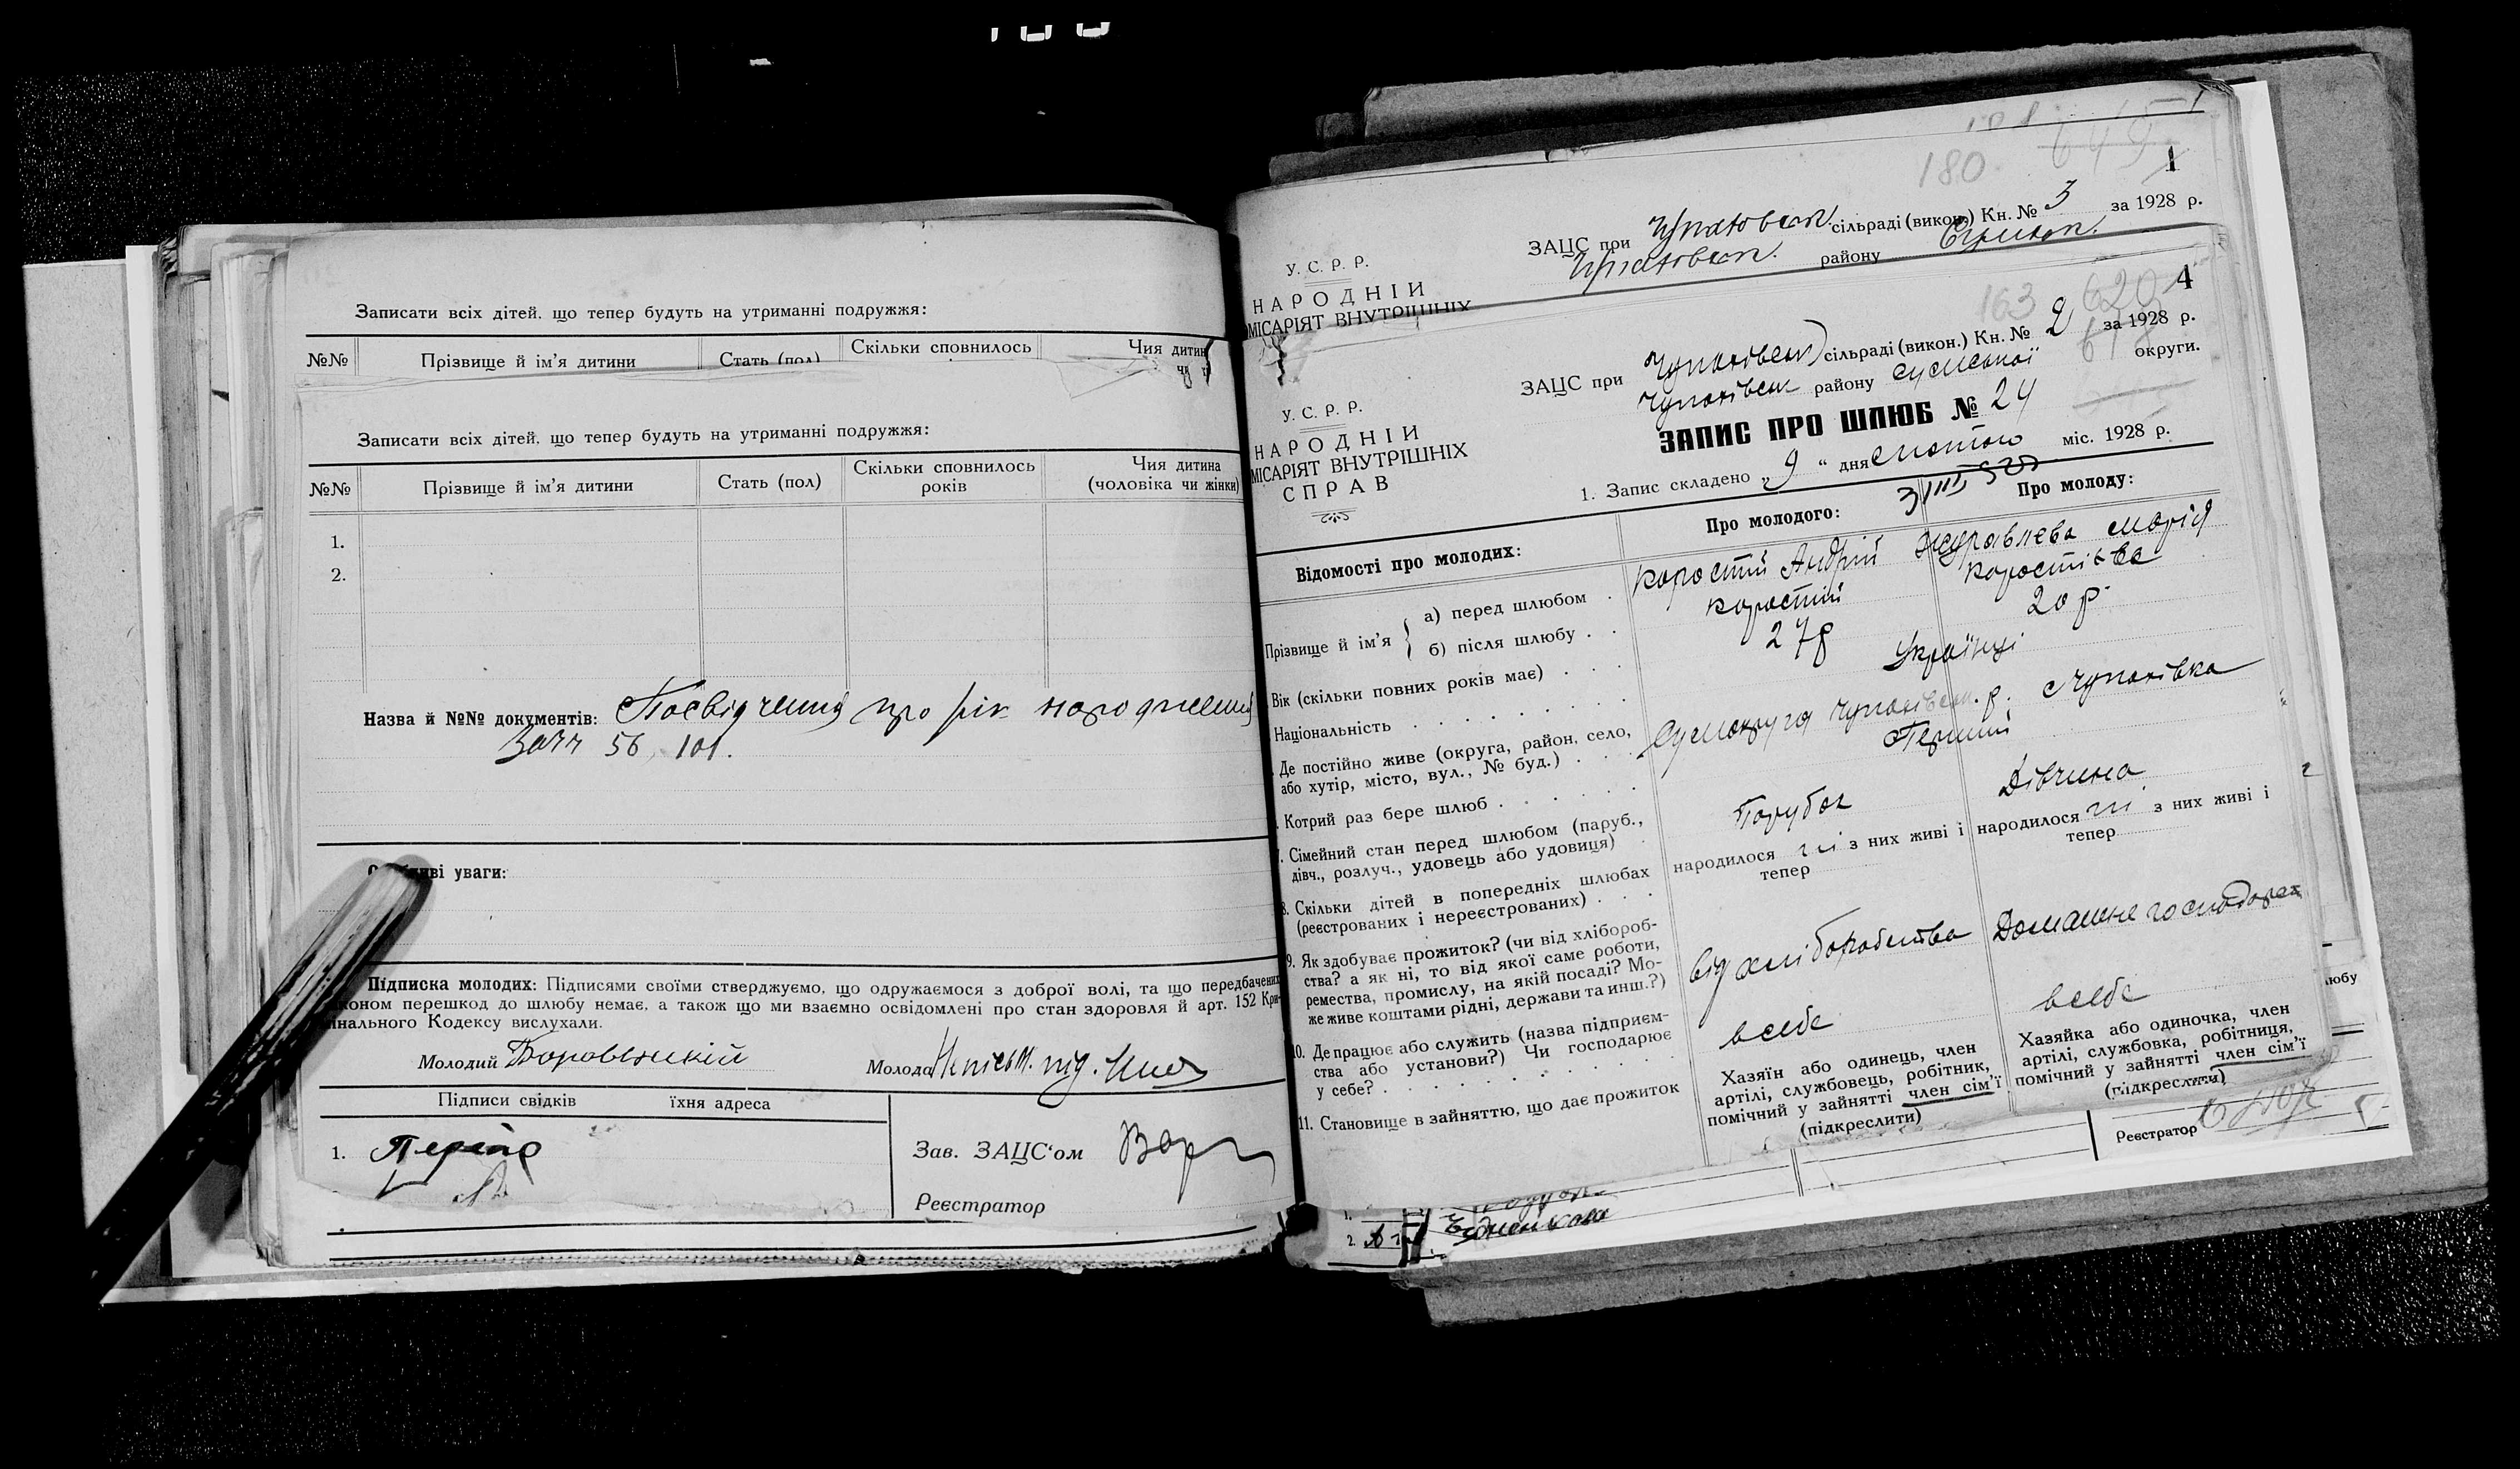 Записати всіх дітей, що тепер будуть на утриманні подружжя:
№№ Прізвище й ім'я дитини Стать (пол) Скільки сповнилось Чия дитин
Записати всіх дітей, що тепер будуть на утриманні подружжя:
№№ Прізвище й ім'я дитини Стать (пол) Скільки сповнилось років Чия дитина (чоловіка чи жінки)
1.
2.
Назва й №№ документів: Посвідчення про рік народження
56, 101.
уваги:
Підписка молодих: Підписями своїми стверджуємо, що одружаємося з доброї волі, та що передбачених
коном перешкод до шлюбу немає, а також що ми взаємно освідомлені про стан здоровля й арт. 152 Кри-
інального Кодексу вислухали.
Молодий Молода
Підписи свідків їхня адреса
1.
Зав. ЗАЦС'ом
Реєстратор
180
1
У. С. Р. Р.
НАРОДНІЙ
МІСАРІЯТ ВНУТРІШНІХ
ЗАЦС при сільраді (викон.) Кн. № 3 за 1928 р.
району
163 620 4
У. С. Р. Р.
НАРОДНІЙ
МІСАРІЯТ ВНУТРІШНІХ
СПРАВ
ЗАЦС при Чупахівськ сільраді (викон.) Кн. № 2 за 1928 р.
Чупахівськ району Сумської округи.
ЗАПИС ПРО ШЛЮБ № 24
1. Запис складено „9“ дня лютого міс. 1928 р.
Відомості про молодих: Про молодого: Про молоду:
Прізвище й ім'я
а) перед шлюбом . Коростій Андрій Журавлєва Марія
б) після шлюбу . . Коростій
Вік (скільки повних років має) . . . 27 р 20 р.
Національність . . . Українці
Де постійно живе (округа, район, село, або хутір, місто, вул., № буд.) . . . Сумокруга Чупахівськ. р. с Чупахівка
Котрий раз бере шлюб . . . Перший
Сімейний стан перед шлюбом (паруб., дівч., розлуч., удовець або удовиця) Парубок Дівчина
8. Скільки дітей в попередніх шлюбах (реєстрованих і нереєстрованих) . . . народилося ні з них живі і тепер народилося ні з них живі і тепер
9. Як здобуває прожиток? (чи від хлібороб-
ства? а як ні, то від якої саме роботи,
ремества, промислу, на якій посаді? Мо-
же живе коштами рідні, держави та инш.?) від хліборобства Домашнє господарст
10. Де працює або служить (назва підприєм-
ства або установи?) Чи господарює
у себе? . . . в себе в себе
11. Становище в зайняттю, що дає прожиток
Хазяїн або одинець, член
артілі, службовець, робітник,
помічний у зайнятті член сім'ї
(підкреслити)
Хазяйка або одиночка, член
артілі, службовка, робітниця,
помічний у зайнятті член сім'ї
(підкреслити)
любу
Реєстратор
1.
2.